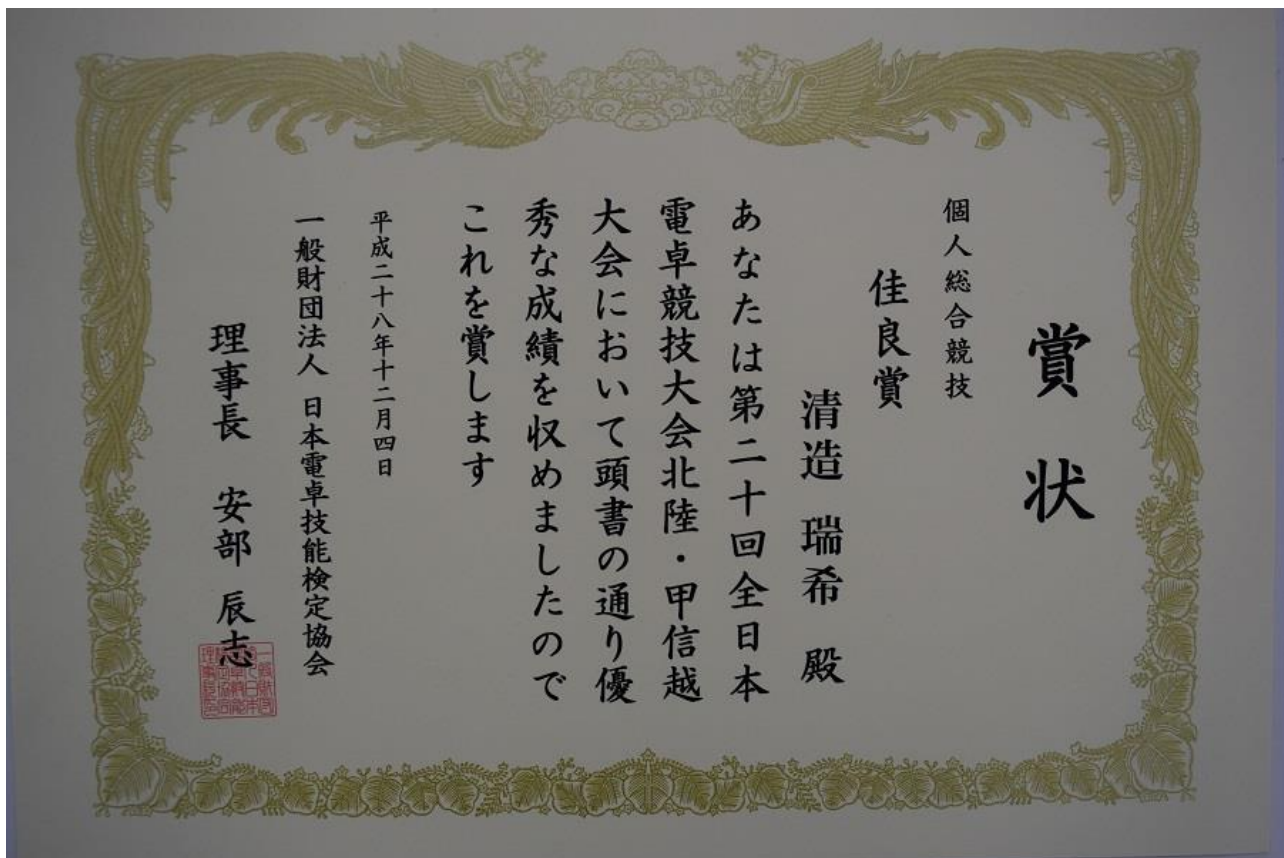 賞状
個人総合競技
佳良賞
清造 瑞希 殿
あなたは第二十回全日本
電卓競技大会北陸・甲信越
大会において頭書の通り優
秀な成績を収めましたので
これを賞します
平成二十八年十二月四日
一般財団法人 日本電卓技能検定協会
理事長 安部 辰志